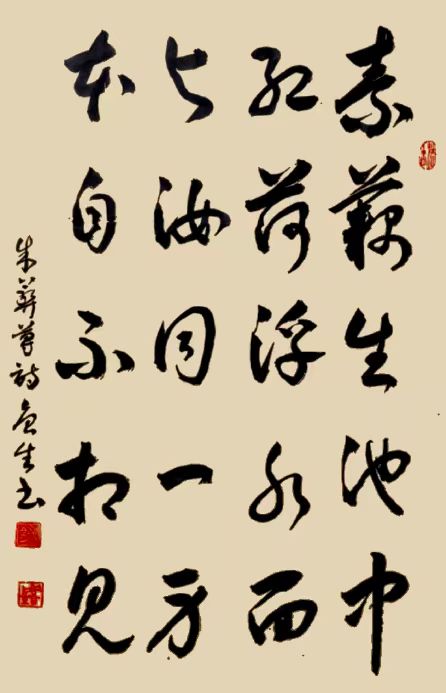 素藕生池中
红荷浮水面
与汝同一房
本自不相见
朱彝尊诗
生书